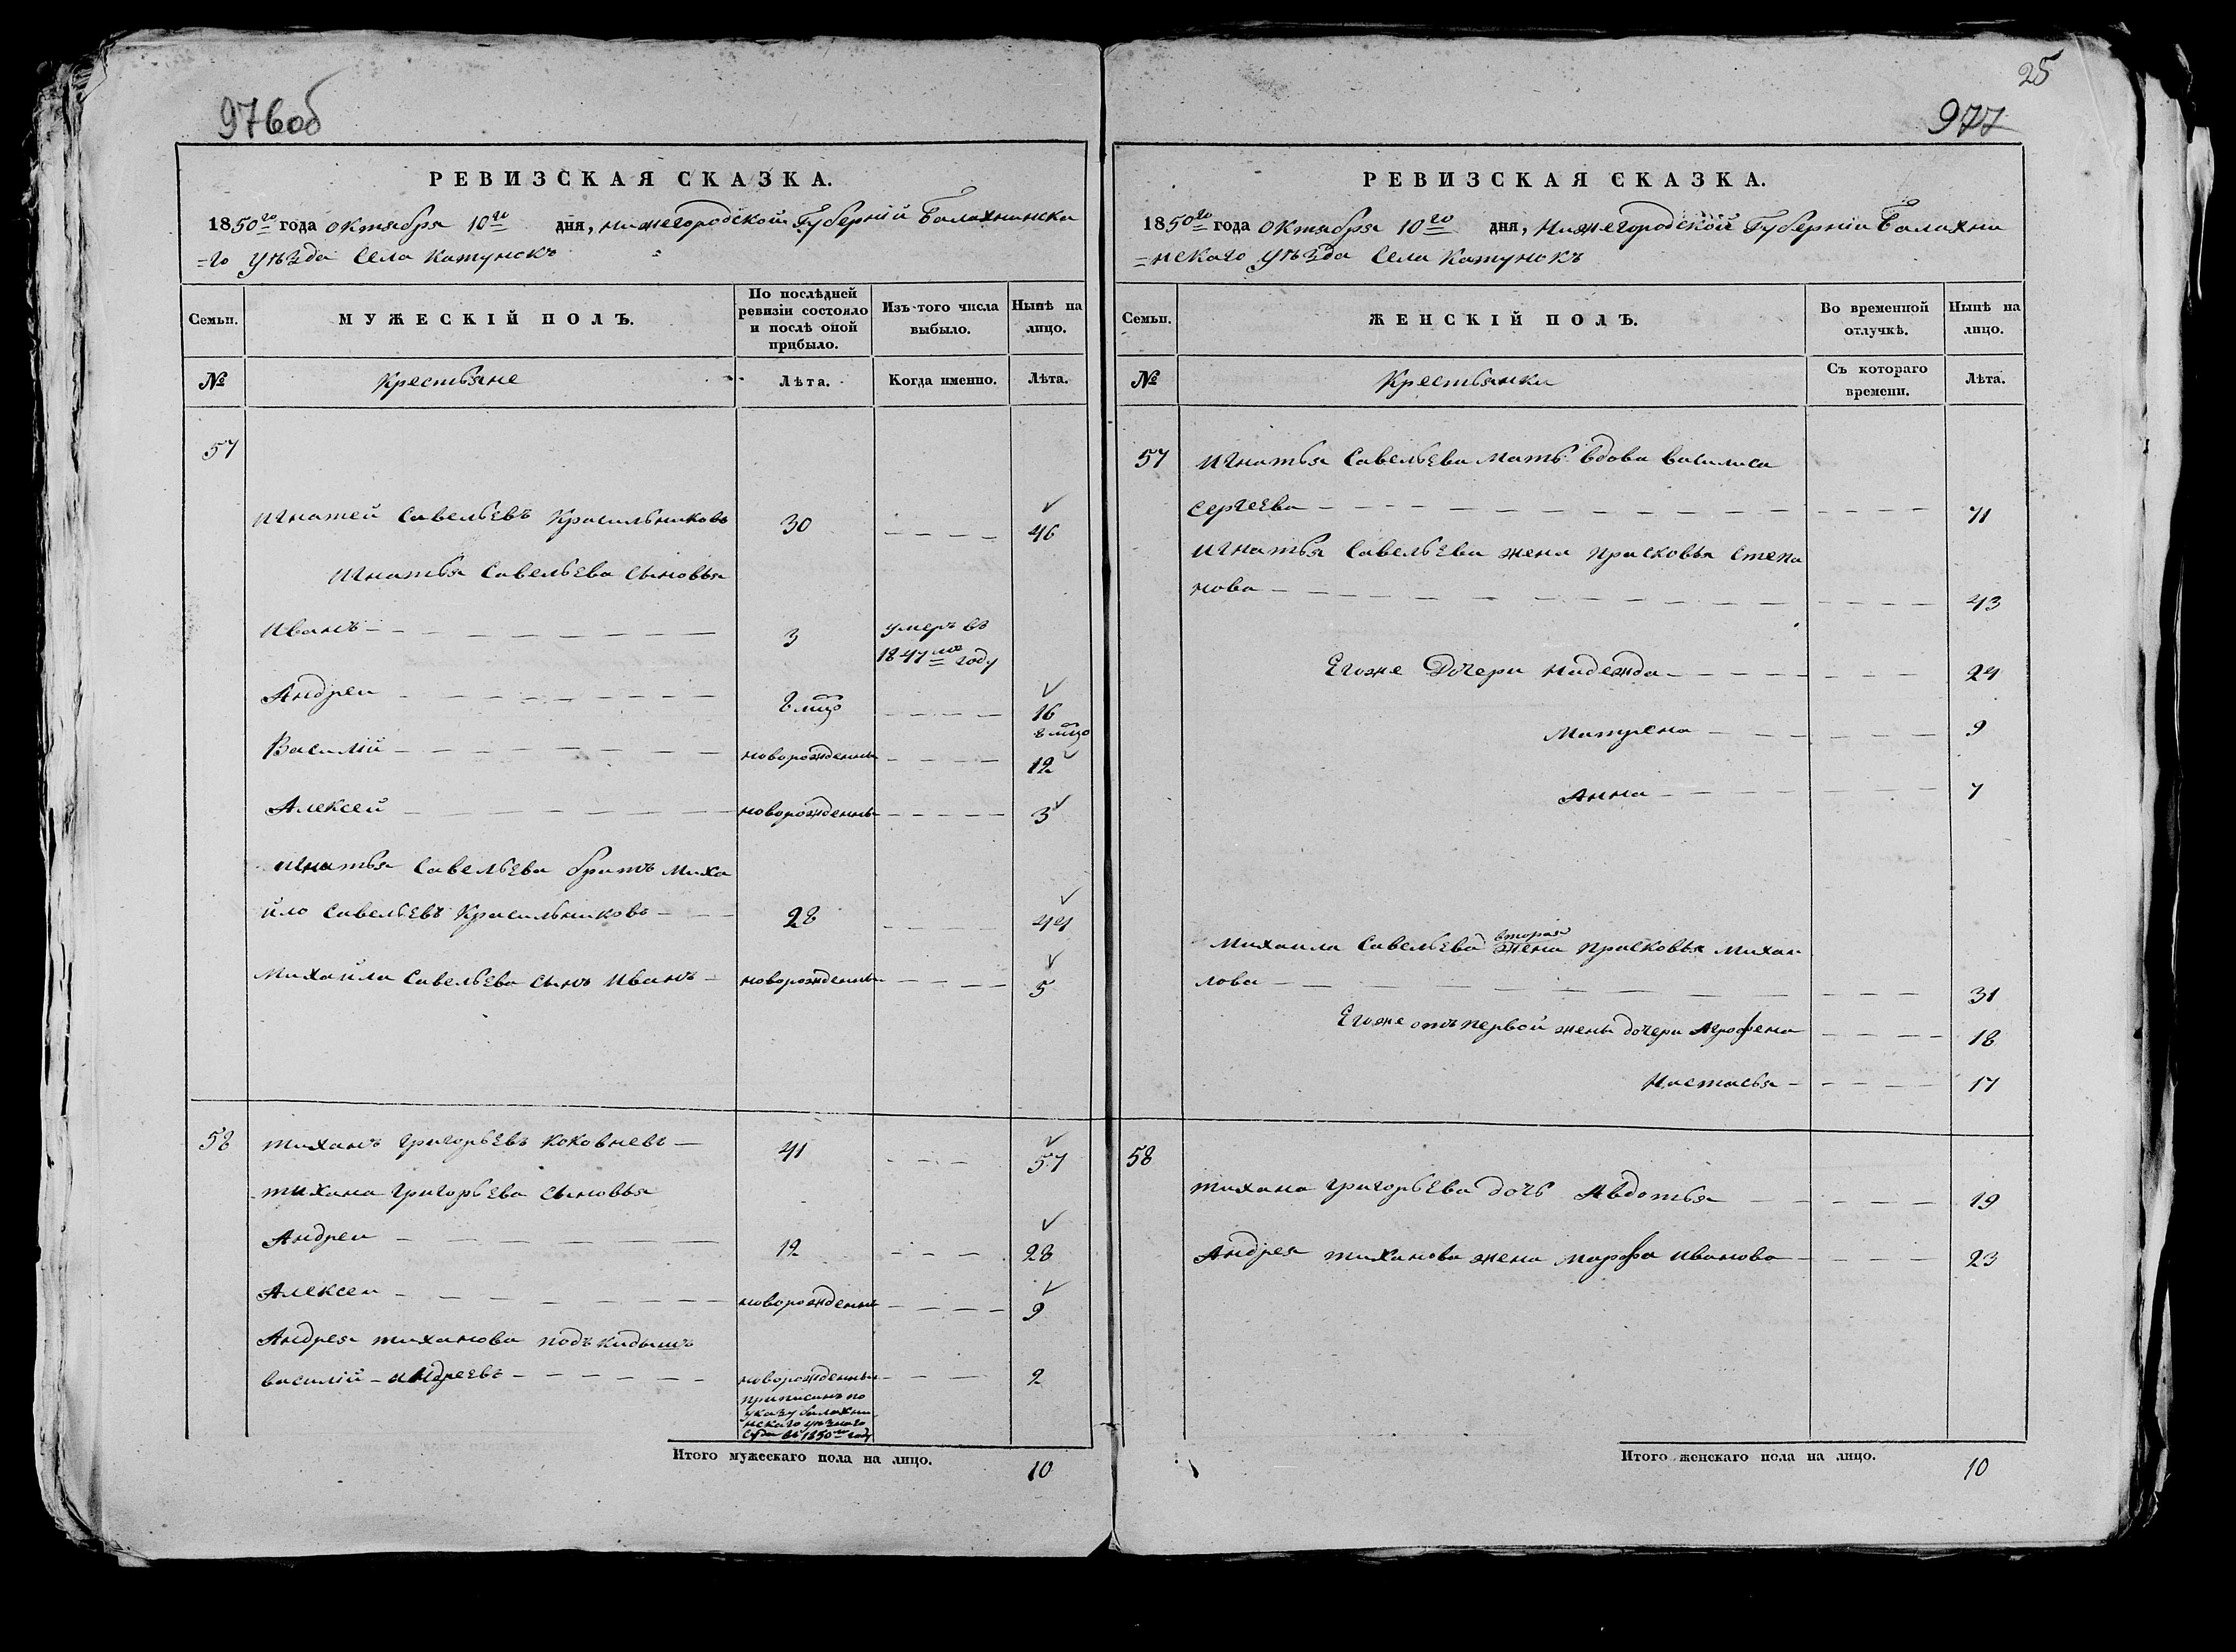 976об
РЕВИЗСКАЯ СКАЗКА.
1850го года октября 10го дня, Нижегородской Губернiи Балахнинска
=го уѣзда Села Катунокъ
Семьи.
МУЖЕСКIЙ ПОЛЪ.
По послѣдней ревизiи состояло и послѣ оной прибыло.
Изъ того числа выбыло.
Нынѣ на лицо.
№
Крестьяне
Лѣта.
Когда именно.
Лѣта.
57
Игнатей Савельевъ Красильниковъ 30 46
Игнатья Савельева сыновья
Иванъ 3 умеръ въ
1847мъ году
Андреи 8 мцо 16
8 мцо
Василiй новорожденны 12
Алексей новорожденны 3
Игнатья Савельева братъ Миха
йло Савельевъ Красильниковъ 28 44
Михайла Савельева сынъ Иванъ новорожденны 5
58 Тиханъ Григорьевъ Коковневъ 41 57
Тихана Григорьева сыновья
Андреи 12 28
Алексеи новорожденны 9
Андрея Тиханова подъкидышъ
Василiй Андреевъ новорожденны 2
приписанъ по
указу Балахни
нскаго уѣзнаго
суда въ 1850мъ году
Итого мужескаго пола на лицо. 10
25
977
РЕВИЗСКАЯ СКАЗКА.
1850го года октября 10го дня, Нижегородской Губернiи Балахни
=нскаго уѣзда Села Катунокъ
Семьи.
ЖЕНСКIЙ ПОЛЪ.
Во временной отлучкѣ.
Нынѣ на лицо.
№
Крестьянки
Съ котораго времени.
Лѣта.
57 Игнатья Савельева мать вдова Василиса
Сергеева 71
Игнатья Савельева жена Прасковья Степа
нова 43
Егоже дочери Надежда 24
Матрена 9
Анна 7
вторая
Михаила Савельева жена Прасковья Михаи
лова 31
Егоже отъ первой жены дочери Аграфена 18
Настасья 17
58
Тихана Григорьева дочь Авдотья 19
Андрея Тиханова жена Марфа Иванова 23
Итого женскаго пола на лицо. 10